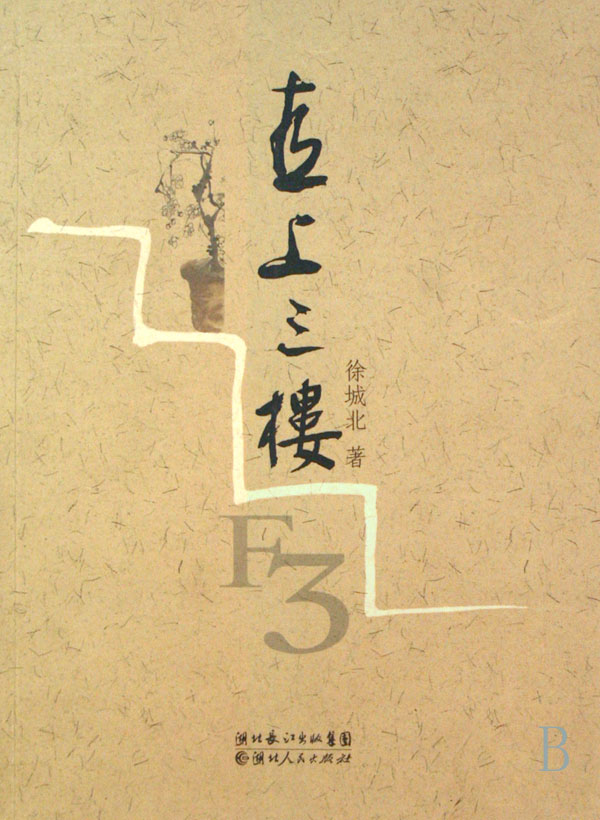 直上三樓
徐城北 著
F3
湖北長江出版集團
湖北人民出版社
B